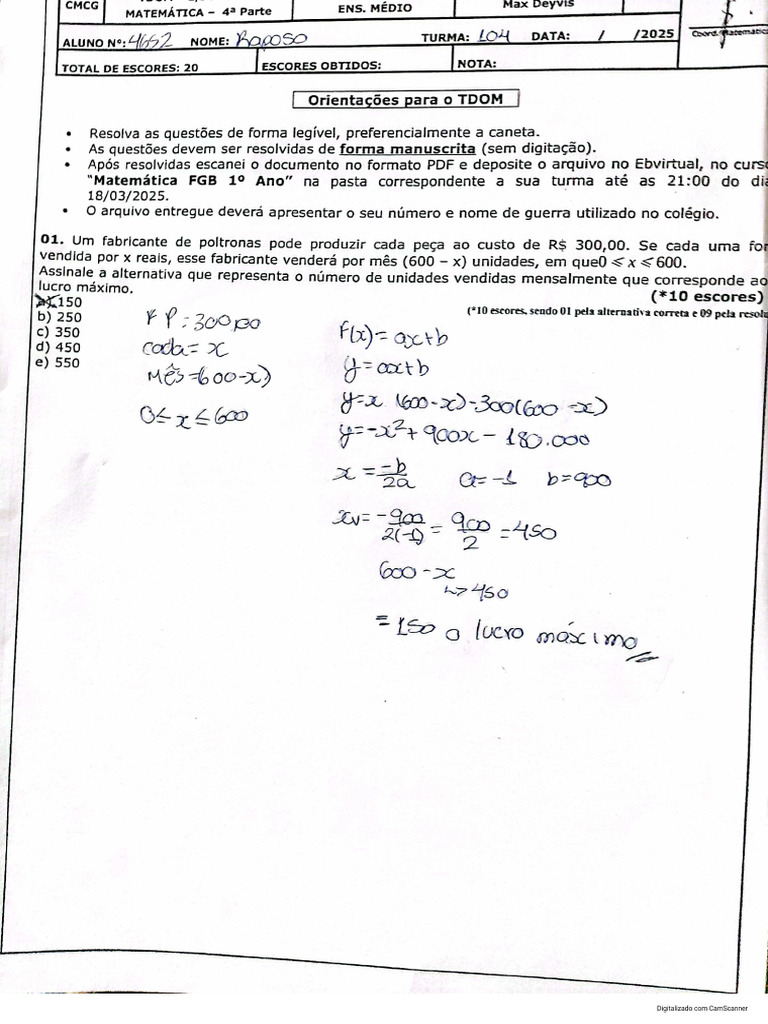 CMCG
MATEMÁTICA – 4ª Parte
ENS. MÉDIO
Max Deyvis
ALUNO Nº: 4652 NOME: Raposo TURMA: 104 DATA: / /2025
TOTAL DE ESCORES: 20 ESCORES OBTIDOS: NOTA:
Orientações para o TDOM
• Resolva as questões de forma legível, preferencialmente a caneta.
• As questões devem ser resolvidas de forma manuscrita (sem digitação).
• Após resolvidas escanei o documento no formato PDF e deposite o arquivo no Ebvirtual, no curs
"Matemática FGB 1º Ano" na pasta correspondente a sua turma até as 21:00 do di
18/03/2025.
• O arquivo entregue deverá apresentar o seu número e nome de guerra utilizado no colégio.
01. Um fabricante de poltronas pode produzir cada peça ao custo de R$ 300,00. Se cada uma for
vendida por x reais, esse fabricante venderá por mês (600 – x) unidades, em que0 ⩽ x ⩽ 600.
Assinale a alternativa que representa o número de unidades vendidas mensalmente que corresponde ao
lucro máximo. (*10 escores)
(*10 escores, sendo 01 pela alternativa correta e 09 pela resolu
a) 150
b) 250
c) 350
d) 450
e) 550
P: 300,00
cada = x
Mês = (600-x)
0 ≤ x ≤ 600
F(x) = ax+b
y = ax+b
y = x (600-x) - 300(600-x)
y = -x² + 900x - 180.000
x = -b/2a a = -1 b = 900
xv = -900/2(-1) = 900/2 = 450
600 - x
↳ 450
= 150 o lucro máximo
Digitalizado com CamScanner